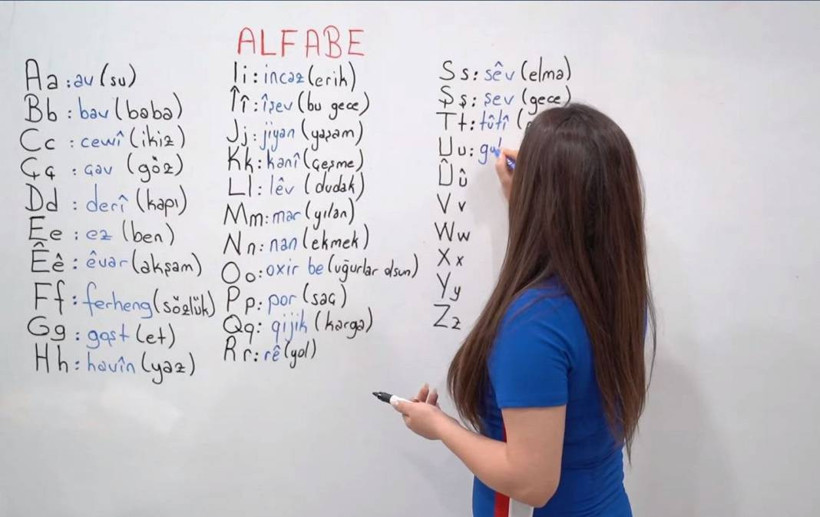 ALFABE
Aa : av (su)
Bb : bav (baba)
Cc : cewî (ikiz)
Çç : çav (göz)
Dd : derî (kapı)
Ee : ez (ben)
Êê : êvar (akşam)
Ff : ferheng (sözlük)
Gg : goşt (et)
Hh : havîn (yaz)
Ii : incaz (erik)
Îî : îşev (bu gece)
Jj : jiyan (yaşam)
Kk : kanî (çeşme)
Ll : lêv (dudak)
Mm : mar (yılan)
Nn : nan (ekmek)
Oo : oxir be (uğurlar olsun)
Pp : por (saç)
Qq : qijik (karga)
Rr : rê (yol)
Ss : sêv (elma)
Şş : şev (gece)
Tt : tûtî (
Uu :
Ûû
Vv
Ww
Xx
Yy
Zz